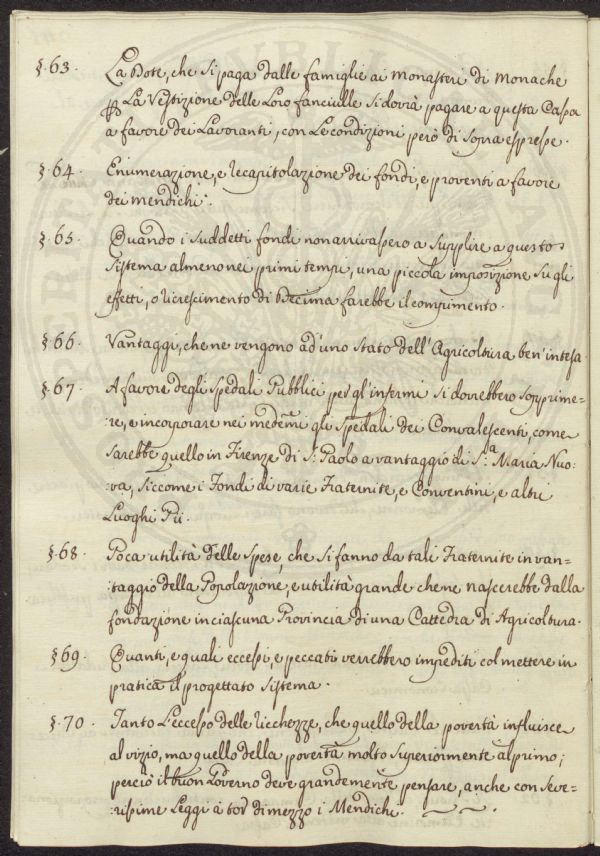 §. 63. La Dote, che si paga dalle famiglie ai monasteri di monache
p La Vestizione delle Loro fanciulle si dovrà pagare a questa Cassa
a favore dei Lavoranti, con le condizioni però di sopra espresse.
§. 64. Enumerazione, e recapitolazione dei fondi, e proventi a favore
dei mendichi.
§. 65. Quando i suddetti fondi non arrivassero a supplire a questo
sistema almeno nei primi tempi, una piccola imposizione su gli
effetti, o ricrescimento di Decima farebbe il compimento.
§. 66. Vantaggi, che ne vengono ad uno Stato dell'Agricoltura ben'intesa.
§. 67. A favore degli Spedali Pubblici per gl'infermi si dovrebbero sopprime-
re, e incorporare nei medemi gli spedali dei Convalescenti, come
sarebbe quello in Firenze di S. Paolo a vantaggio di S.ta Maria Nuo-
va, siccome i Fondi di varie Fraternite, e Conventini, e altri
Luoghi Pii.
§. 68. Poca utilità delle spese, che si fanno da tali Fraternite in van-
taggio della Popolazione, e utilità grande che ne nascerebbe dalla
fondazione in ciascuna Provincia di una Cattedra di Agricoltura.
§. 69. Quanti, e quali eccessi, e peccati verrebbero impediti col mettere in
pratica il progettato sistema.
§. 70. Tanto L'eccesso delle ricchezze, che quello della povertà influisce
al vizio, ma quello della povertà molto superiormente al primo;
perciò il buon Governo deve grandemente pensare, anche con seve-
rissime Leggi a tor di mezzo i Mendichi.